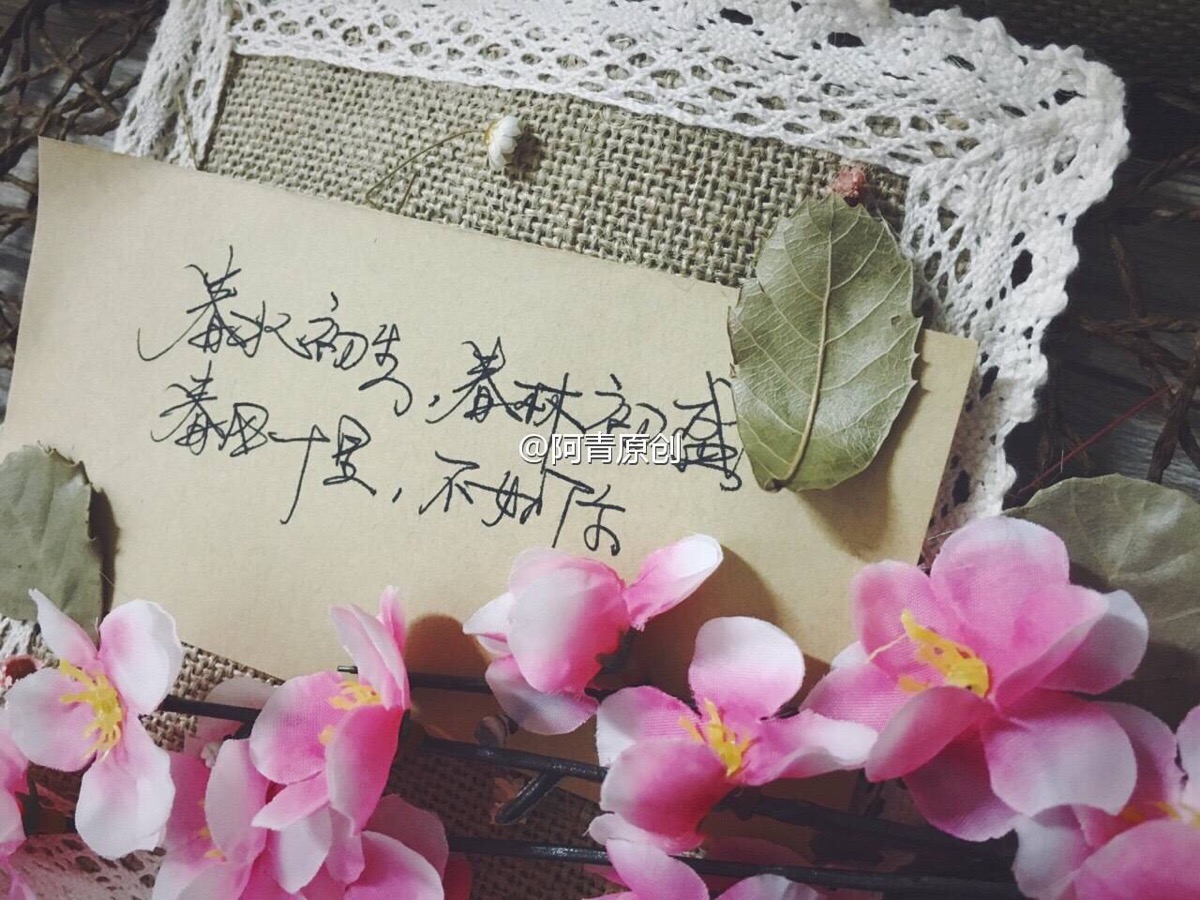 春水初生,春林初盛
春风十里,不如你
@阿青原创